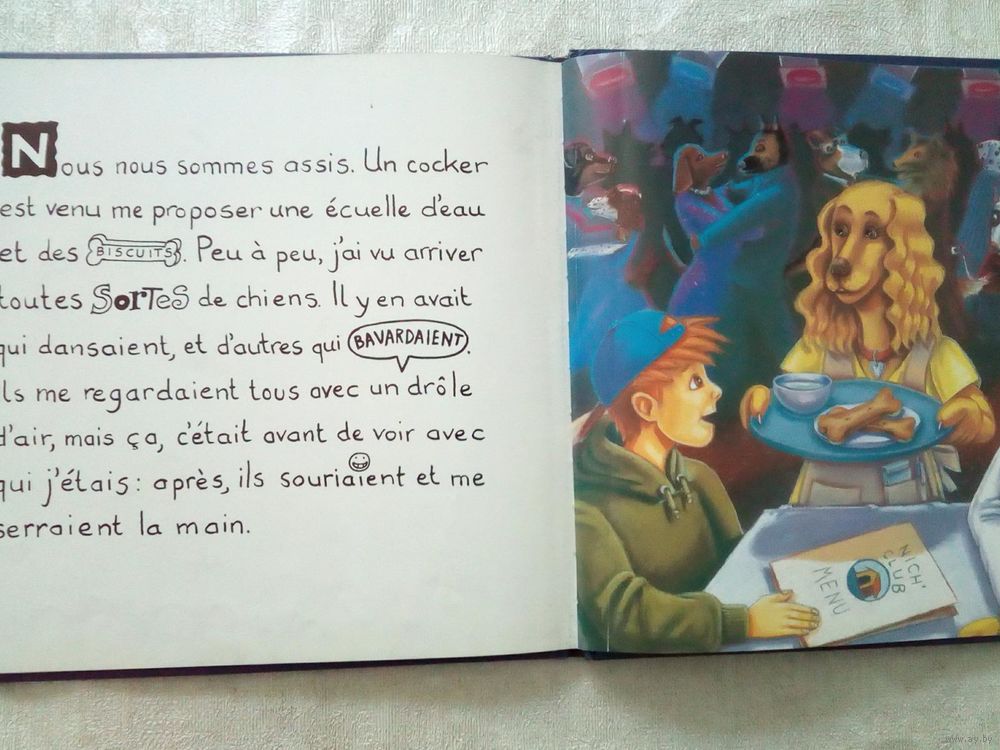 Nous nous sommes assis. Un cocker
est venu me proposer une écuelle d'eau
et des BISCUITS. Peu à peu, j'ai vu arriver
toutes SORTES de chiens. Il y en avait
qui dansaient, et d'autres qui BAVARDAIENT.
Ils me regardaient tous avec un drôle
d'air, mais ça, c'était avant de voir avec
qui j'étais : après, ils souriaient et me
serraient la main.
NICH'
CLUB
MENU
www.ay.by